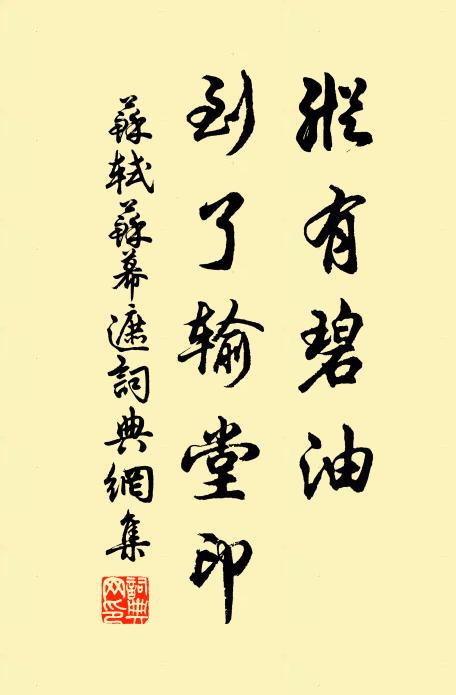 縱有碧油
到了輸堂印
蘇軾蘇幕遮詞典網集
詞典网印